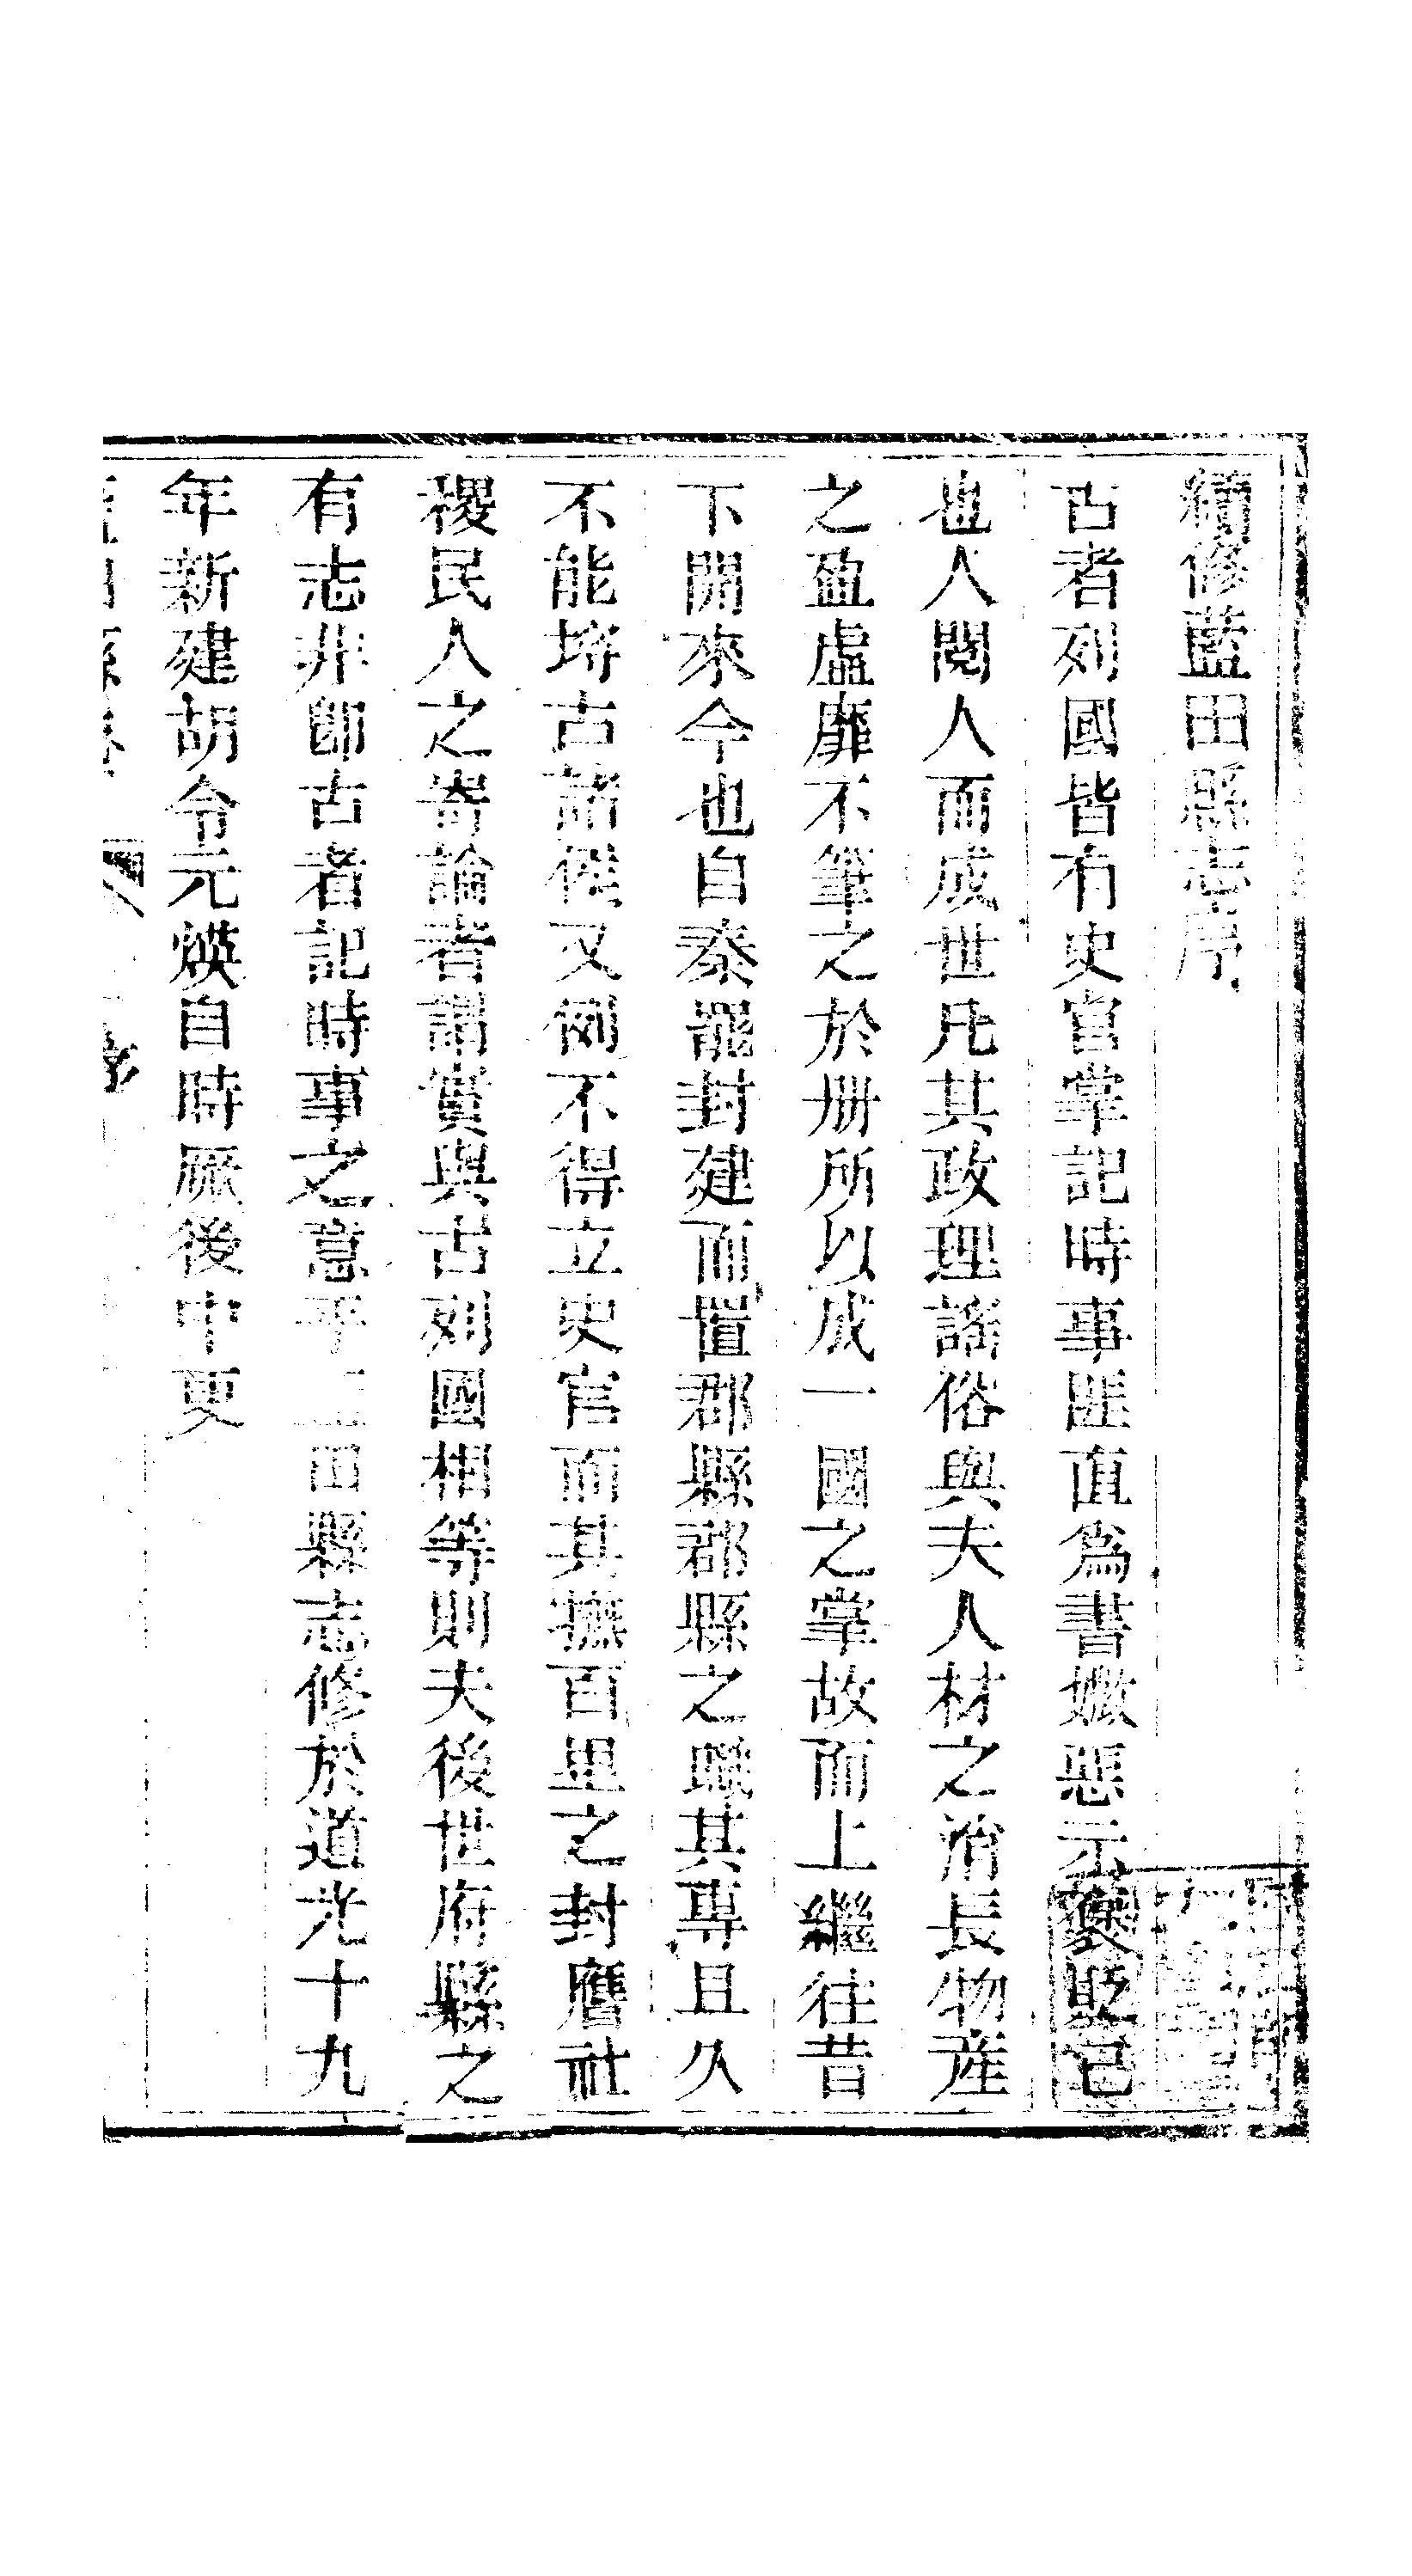 續修藍田縣志序
古者列國皆有史官掌記時事匪直爲書媺惡示襃貶已
也人閱人而成世凡其政理謠俗與夫人材之消長物産
之盈虛靡不筆之於册所以成一國之掌故而上繼往昔
下開來今也自秦罷封建而置郡縣郡縣之職其專且久
不能埒古諸侯又例不得立史官而其撫百里之封膺社
稷民人之寄論者謂實與古列國相等則夫後世府縣之
有志非即古者記時事之意乎 田縣志修於道光十九
年新建胡令元煐自時厥後中更
序